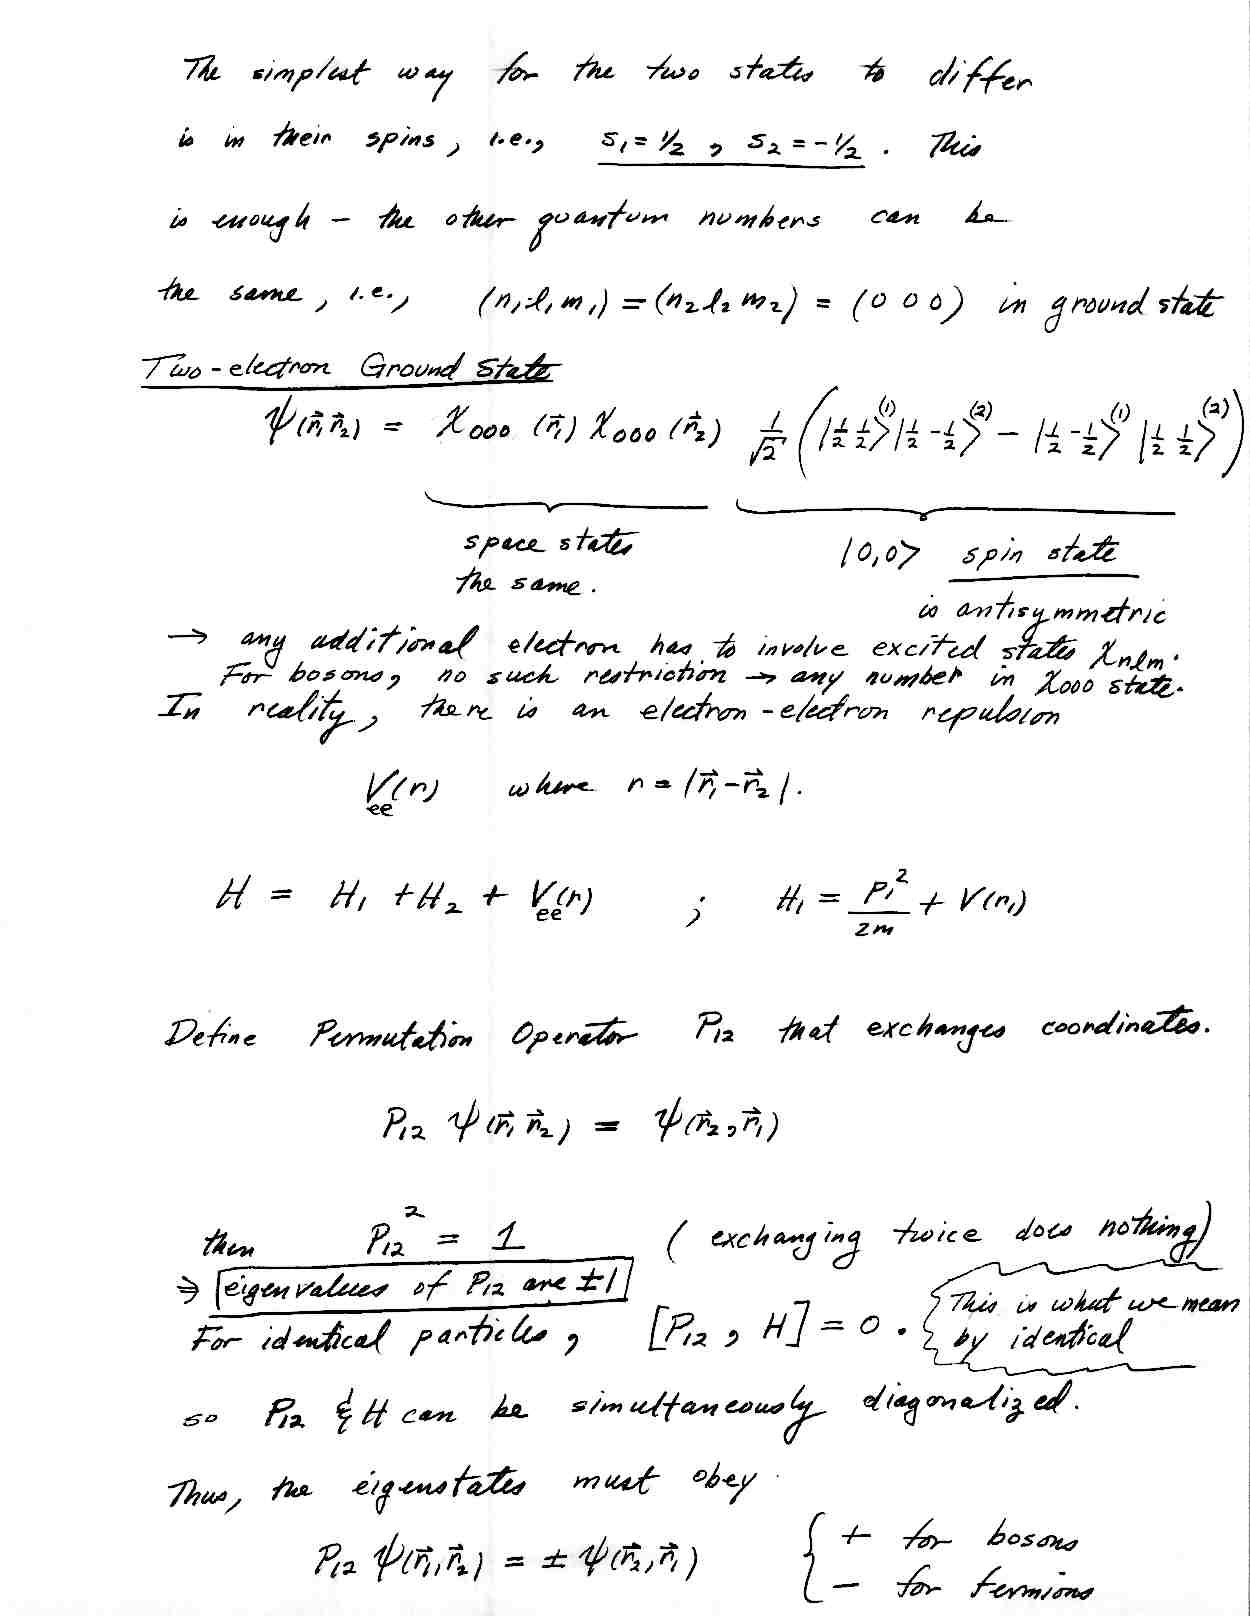 The simplest way for the two states to differ
is in their spins, i.e., s₁ = 1/2 , s₂ = -1/2 . This
is enough – the other quantum numbers can be
the same, i.e., (n₁ l₁ m₁) = (n₂ l₂ m₂) = (0 0 0) in ground state
Two-electron Ground State
ψ(r⃗₁ r⃗₂) = χ₀₀₀ (r⃗₁) χ₀₀₀ (r⃗₂) 1/√2 ( |1/2 1/2>⁽¹⁾ |1/2 -1/2>⁽²⁾ – |1/2 -1/2>⁽¹⁾ |1/2 1/2>⁽²⁾ )
space states |0,0> spin state
the same. is antisymmetric
→ any additional electron has to involve excited states χₙₗₘ.
For bosons, no such restriction → any number in χ₀₀₀ state.
In reality, there is an electron-electron repulsion
V_ee(r) where r = |r⃗₁ - r⃗₂|.
H = H₁ + H₂ + V_ee(r) ; H₁ = p₁²/2m + V(r₁)
Define Permutation Operator P₁₂ that exchanges coordinates.
P₁₂ ψ(r⃗₁ r⃗₂) = ψ(r⃗₂, r⃗₁)
then P₁₂² = 1 ( exchanging twice does nothing)
⇒ eigenvalues of P₁₂ are ±1
For identical particles, [P₁₂ , H] = 0 . This is what we mean
by identical
so P₁₂ & H can be simultaneously diagonalized.
Thus, the eigenstates must obey
P₁₂ ψ(r⃗₁, r⃗₂) = ± ψ(r⃗₂, r⃗₁) { + for bosons
– for fermions